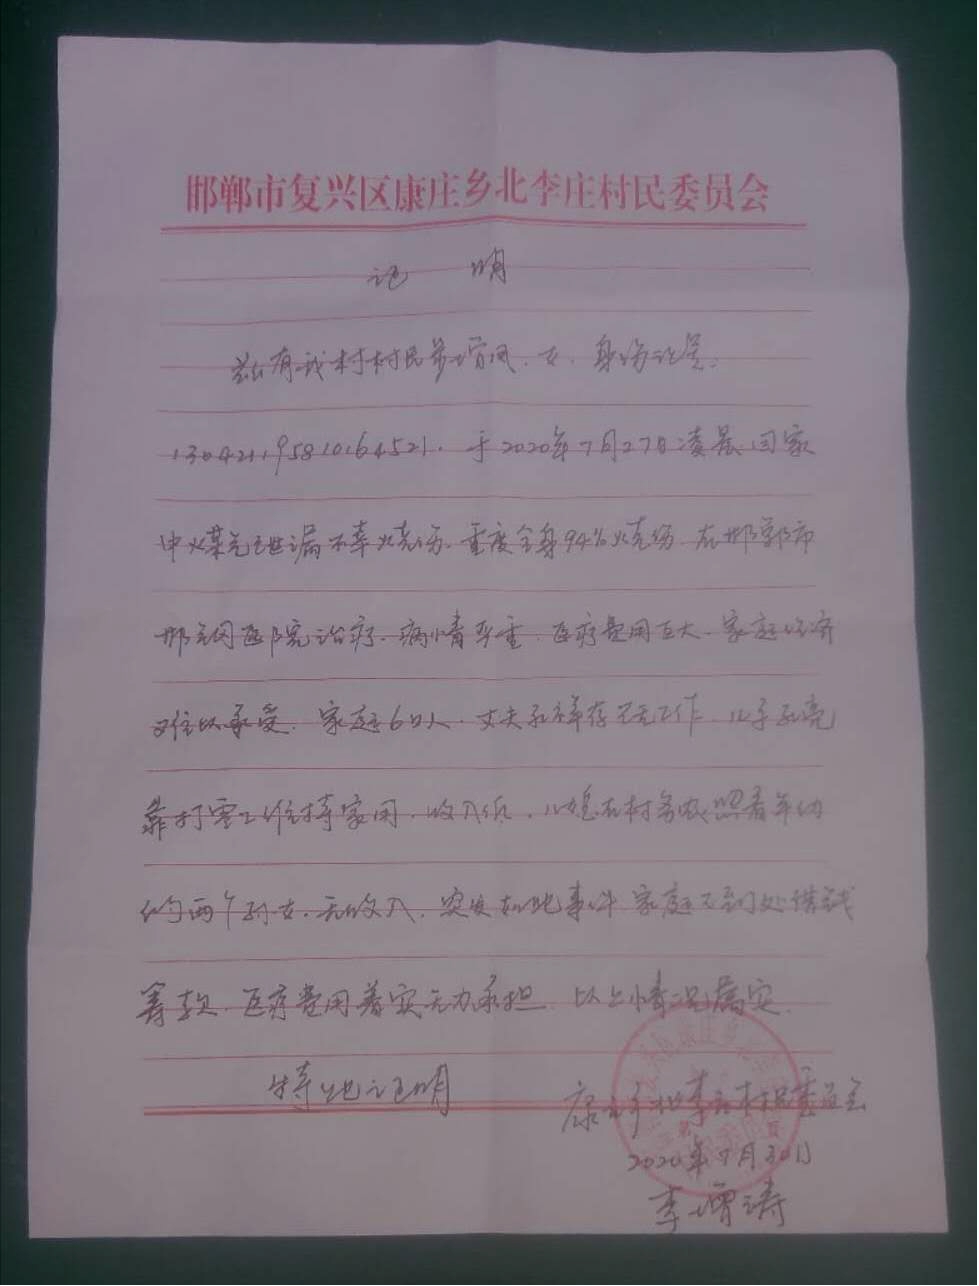 邯郸市复兴区康庄乡北李庄村民委员会
证 明
兹有我村村民 女、身份证号:
130421195810164521. 于2020年7月27日凌晨因家
中煤气泄漏不幸烧伤、重度全身94%烧伤、在邯郸市
邯钢医院治疗、病情严重、医疗费用巨大、家庭经济
难以承受、家庭6口人、丈夫 祥存 无工作、儿子 亮
靠打零工维持家用、收入低、儿媳在村务农照看年幼
的两个孙女、无收入、突发如此事件家庭 到处借钱
筹款、医疗费用着实无力承担、以上情况属实.
特此证明
康庄乡北李庄村民委员会
2020年7月30日
李增涛